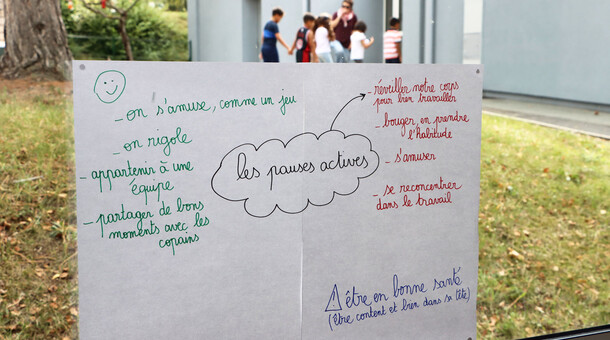 - on s'amuse, comme un jeu
- on rigole
- appartenir à une
équipe
- partager de bons
moments avec les
copains
les pauses actives
- réveiller notre corps
pour bien travailler
- bouger, en prendre
l'habitude
- s'amuser
- se reconcentrer
dans le travail
⚠ être en bonne santé
(être content et bien dans sa tête)